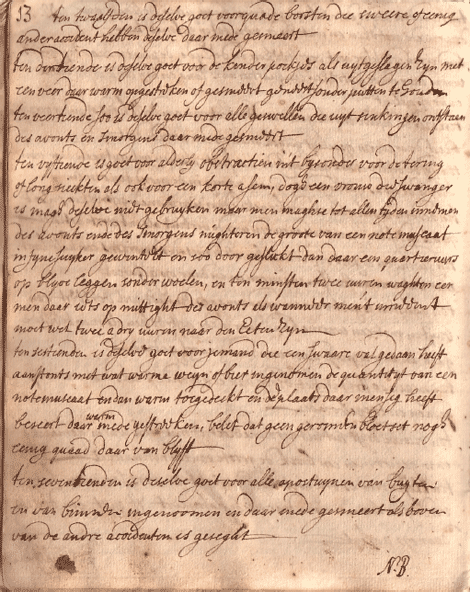 13 ten twaalfden is deselve goet voor quade borsten die sweere of eenig
ander accident hebben deselve daar mede gesmeert
ten dertiende is deselve goet voor de kinder pockjes als uytgeslagen zyn met
een veer daar warm opgestreken of gesmeert geneest sonder putten te houden
ten veertiende soo is deselve goet voor alle geswellen die uyt sinkingen ontstaan
des avonts en smorgens daar mede gesmeert
ten vyftiende is goet voor alderly obstructien int bysonder voor de tering
of long siekten als ook voor een korte asem, dogh een vrouw die swanger
is magh deselve niet gebruyken maar men magh se tot allen tyden innemen
des avonts ende des smorgens nughteren de groote van een note muscaat
in syne suyker gewentelt en soo door geslickt dan daar een quartier uurs
op blyve leggen sonder woelen, en ten minsten twee uuren waghten eer
men daar iets op nuttight des avonts als wanneer ment inneemt
moet wel twee a dry uuren naar den Eeten zyn
ten sestienden is deselve goet voor jemand die een swaare val gedaan heeft
aanstonts met wat warme weyn of bier ingenomen de quantityt van een
note muscaat en dan warm toegedeckt en de plaats daar men sig heeft
beseert daar warm mede gestreeken, belet dat geen geronnen bloet set nogh
eenig quaad daar van blyft
ten seventienden is deselve goet voor alle apostuymen van buyten
en van binnen ingenoomen en daar mede gesmeert als boven
van de andre accidenten is geseght
N:B.